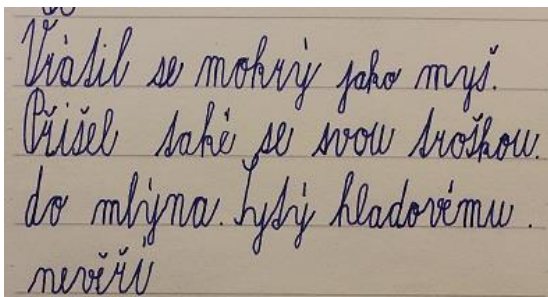 Vrátil se mokrý jako myš.
Přišel také se svou troškou.
do mlýna. Sytý hladovému.
nevěří